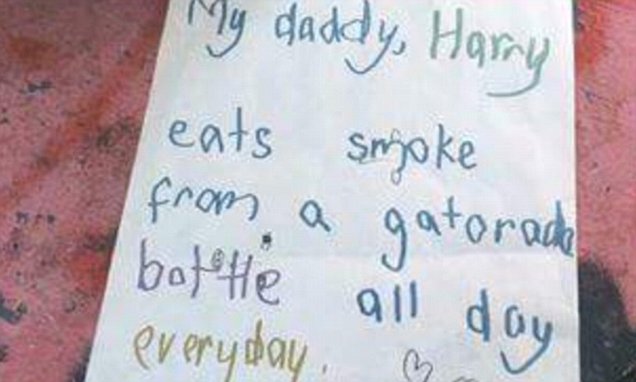 My daddy, Harry
eats smoke
from a gatorade
bottle all day
everyday.